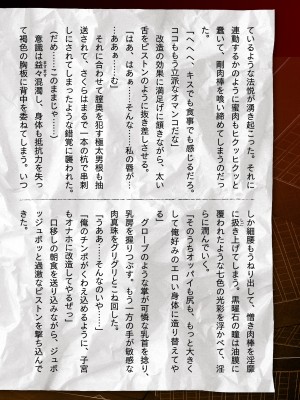 ているような法悦が湧き起こった。それに
連動するかのように蜜肉もヒクッヒクッと
蠢いて、剛肉棒を喰い締めてしまうのだっ
た。
「へへへ、キスでも食事でも感じるだろ。
ココももう立派なオマンコだな」
改造の効果に満足げに頷きながら、太い
舌をピストンのように抜き差しさせる。
「はぁ、はぁぁ……そんな……私の唇が…
…あああ……む」
それに合わせて膣奥を犯す極太男根も抽
送されて、さくらはまるで一本の杭で串刺
しにされてしまったような錯覚に襲われた。
（だめ……このままじゃ……）
意識は益々混濁し、身体も抵抗力を失っ
て褐色の胸板に背中を委ねてしまう。いつ
しか細腰もうねり出して、憎き肉棒を淫靡
に扱き上げてしまう。黒曜石の瞳は油膜に
覆われたような七色の光彩を浮かべて、淫
らに潤んでいく。
「そのうちオッパイも尻も、もっと大きく
して俺好みのエロい身体に造り替えてや
る」
グローブのような掌が可憐な乳首を捻り、
乳房を握りつぶす。もう一方の手が敏感な
肉真珠をグリグリとこね回した。
「うああ……そんなのいや……」
「俺のチンポがくわえ込めるように、子宮
もオナホに改造してやるぜっ」
口移しの朝食を送り込みながら、ジュボ
ッジュボッと過激なピストンを撃ち込んで
きた。